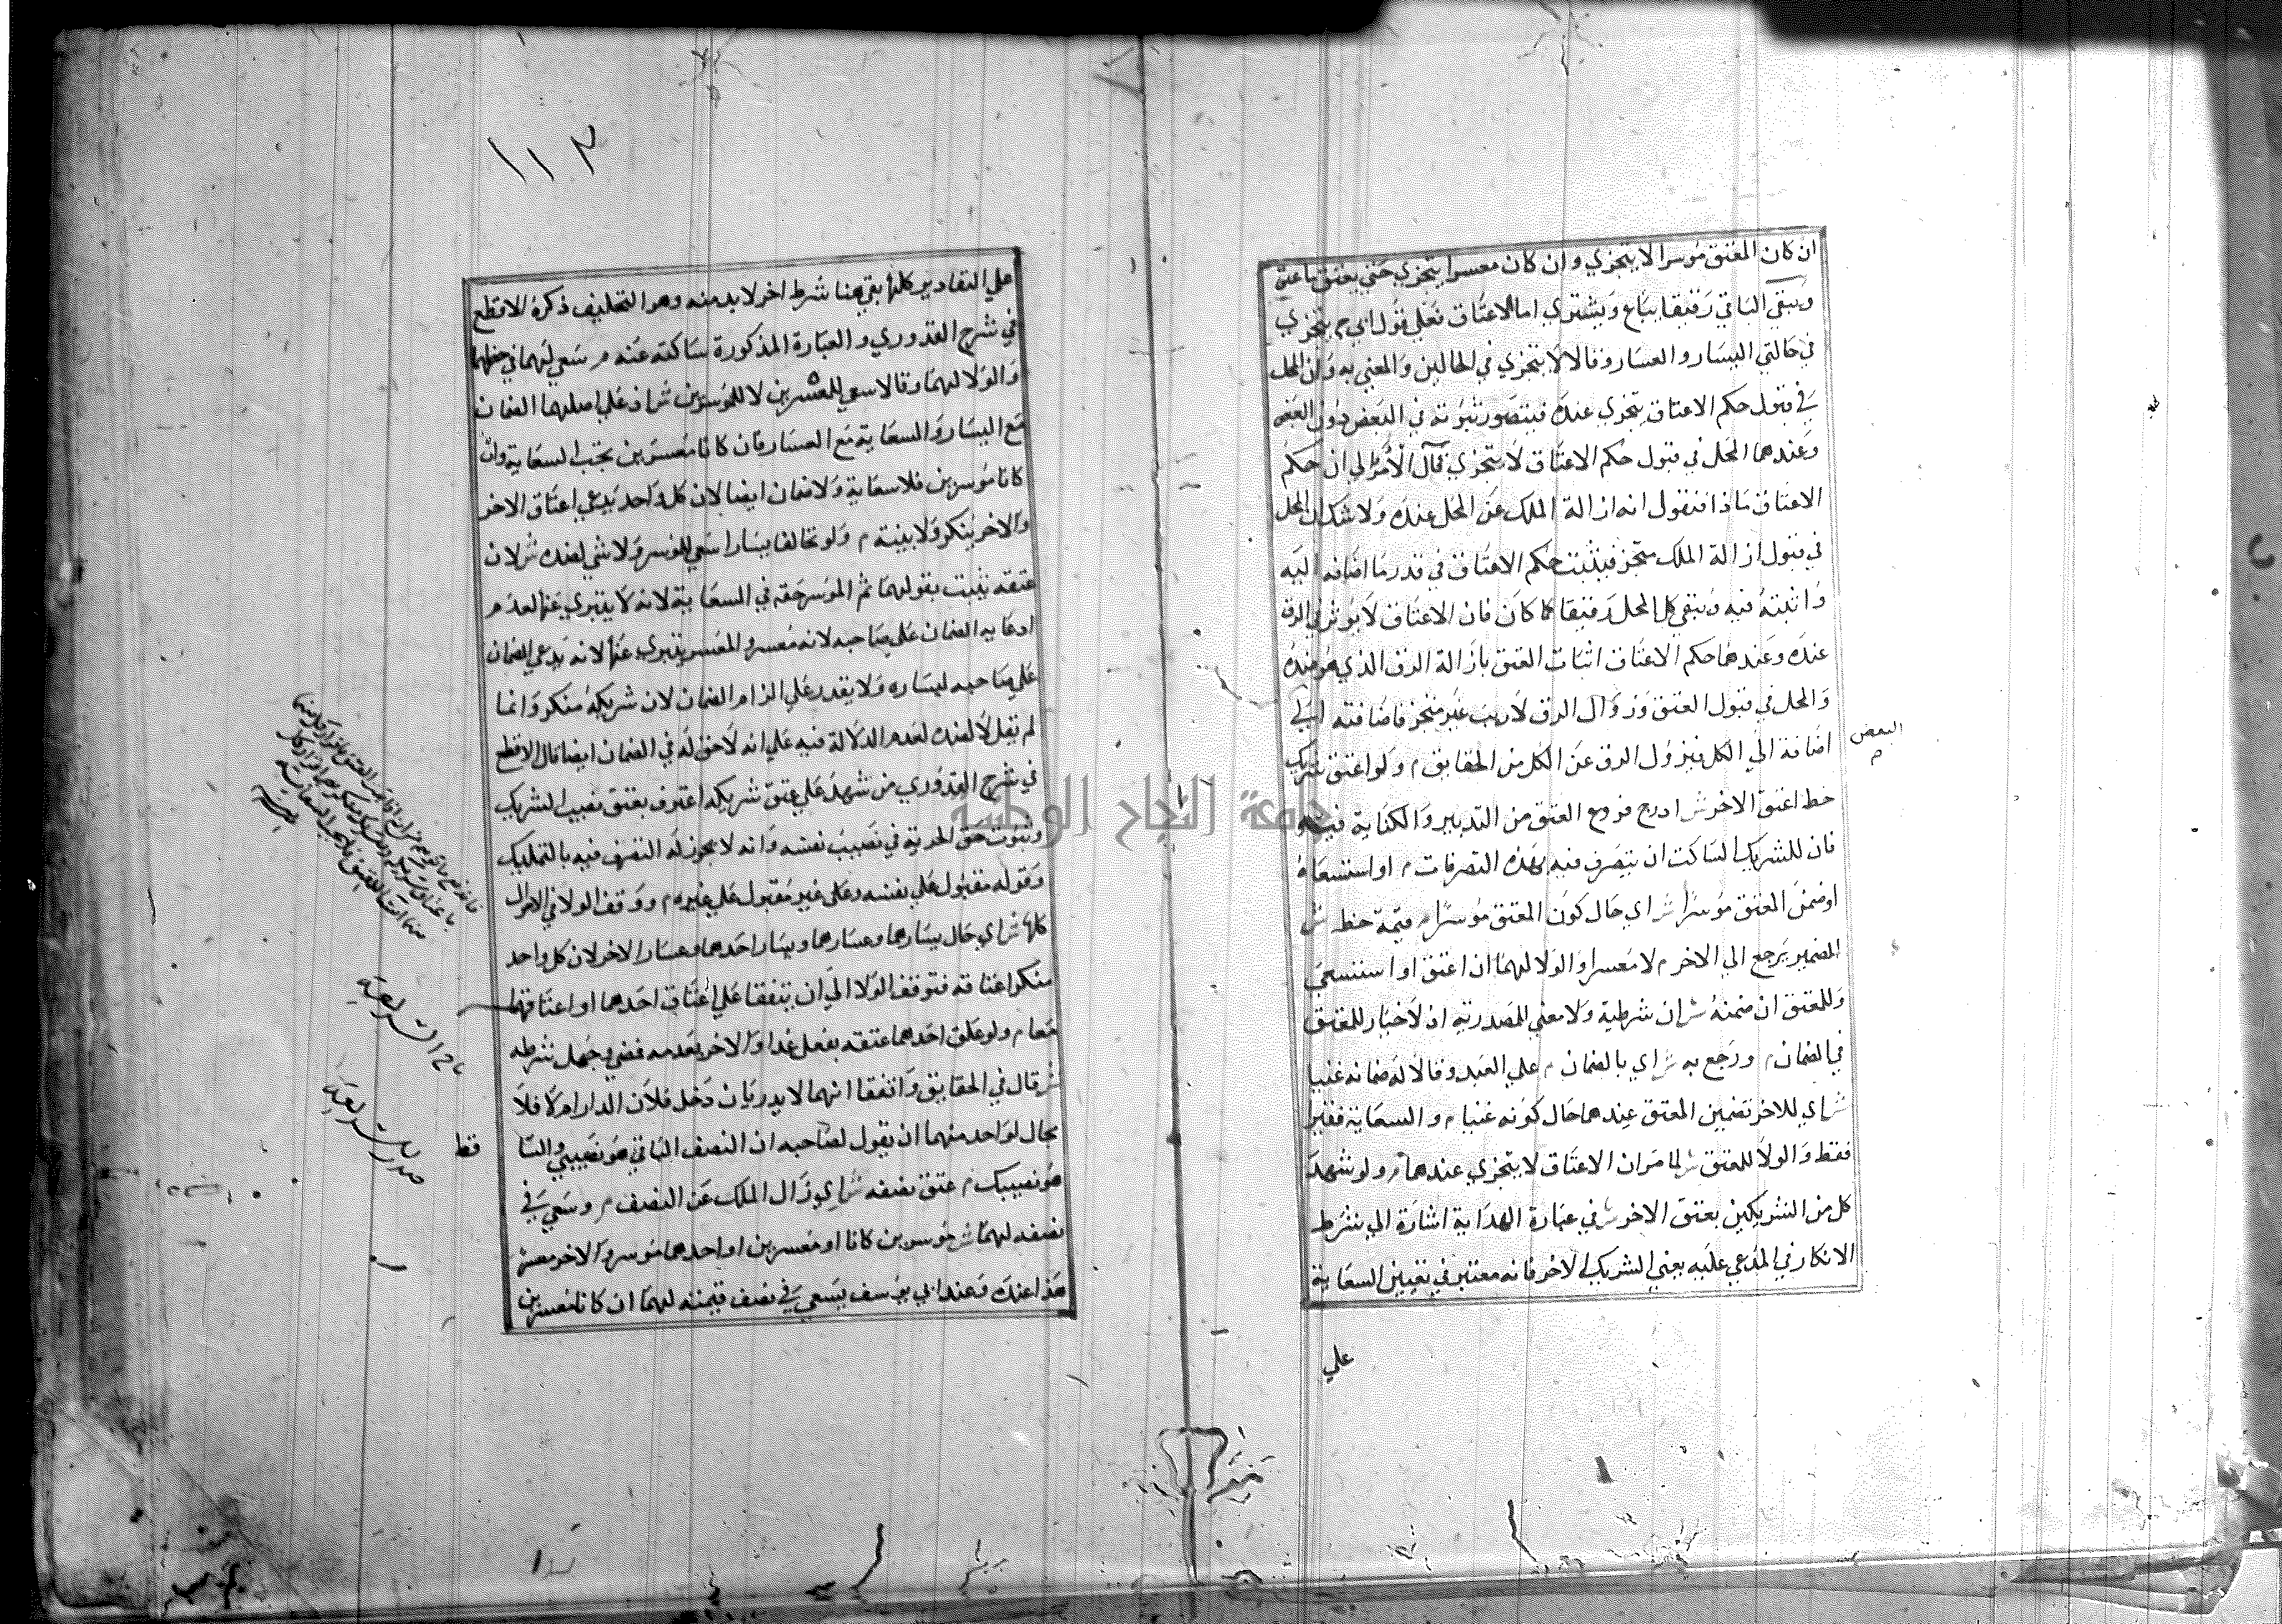 ان كان المعتق موسرا لا يتجزي وان كان معسرا يتجزي حتي يعتق ما عتق
ويبقي الباقي رقيقا يباع ويشتري اما الاعتاق فعلي قول ابي ح يتجزي
في حالتي اليسار والعسار وقالا لا يتجزي في الحالين والمعني به وان المحل
في قبول حكم الاعتاق يتجزي عنده فيتصور ثبوته في البعض دون البعض
وعندهما المحل في قبول حكم الاعتاق لا يتجزي فمآل الامر الي ان حكم
الاعتاق ماذا فنقول انه ازالة الملك عن المحل عنده ولا شك ان المحل
في قبول ازالة الملك متجز فيثبت حكم الاعتاق في قدر ما اضافه اليه
واثبته فيه ويبقي كل المحل رقيقا كما كان فان الاعتاق لا يوثر في الرق
عنده وعندهما حكم الاعتاق اثبات العتق بازالة الرق الذي هو ضده
والمحل في قبول العتق وزوال الرق لا ريب غير متجز فاضافته الي
البعض
اضافة الي الكل فيزول الرق عن الكل من الحقايق م ولو اعتق شريك
حظ اعتق الاخر ش ادرج فروع العتق من التدبير والكتابة فيه
فان للشريك الساكت ان يتصرف فيه بهذه التصرفات م او استسعاه
او ضمن المعتق موسرا ش اي حال كون المعتق موسرا م قيمة حظه ش
الضمير يرجع الي الاخر م لا معسرا والولا لهما ان اعتق او استسعي
وللمعتق ان ضمنه ش ان شرطية ولا معني للمصدرية اذ لا خيار للمعتق
في الضمان م ورجع به ش اي بالضمان م علي العبد وقالا له ضمانه غنيا
ش اي للاخر تضمين المعتق عندهما حال كونه غنيا م والسعاية فقير
فقط والولا للمعتق ش لما مر ان الاعتاق لا يتجزي عندهما م ولو شهد
كل من الشريكين بعتق الاخر ش في عبارة الهداية اشارة الي شرط
الانكار في المدعي عليه يعني الشريك الاخر فانه معتبر في تعيين السعاية
علي
١١٣
علي التقادير كلها بقي هنا شرط اخر لا بد منه وهو التحليف ذكره الاقطع
في شرح القدوري والعبارة المذكورة ساكتة عنه م سعي لهما في حظهما
والولا لهما وقالا سعي للمعسرين لا للموسرين ش اذ علي اصلهما الضمان
مع اليسار والسعاية مع العسار فان كانا معسرين تجب السعاية وان
كانا موسرين فلا سعاية ولا ضمان ايضا لان كل واحد يدعي اعتاق الاخر
والاخر ينكر ولا بينة م ولو تخالفا يسارا سعي للموسر ولا شي لضده ش لان
عتقه يثبت بقولهما ثم الموسر حقه في السعاية لانه لا يتبري عنها لعدم
ادعايه الضمان علي صاحبه لانه معسر والمعسر يتبري عنها لانه يدعي الضمان
علي صاحبه ليساره ولا يقدر علي الزام الضمان لان شريكه منكر وانما
لم يقل لا لضده لعدم الدلالة فيه علي انه لا حق له في الضمان ايضا قال الاقطع
في شرح القدوري من شهد علي عتق شريكه اعترف بعتق نصيب الشريك
وثبوت حق الحرية في نصيب نفسه وانه لا يجوز له التصرف فيه بالتمليك
وقوله مقبول علي نفسه وعلي غير مقبول علي غيره م ووقف الولا في الاحوال
كلها ش اي حال يسارهما وعسارهما ويسار احدهما وعسار الاخر لان كل واحد
منكر اعتاقه فتوقف الولا الي ان يتفقا علي اعتاق احدهما او اعتاقهما
تاج الشريعة
معا م ولو علق احدهما عتقه بفعل غدا والاخر بعدمه فمضي وجهل شرطه
ش قال في الحقايق واتفقا انهما لا يدريان دخل فلان الدار ام لا فلا
صدر الشريعة
فقط
مجال لواحد منهما ان يقول لصاحبه ان النصف الباقي هو نصيبي والسا
هو نصيبك م عتق نصفه ش اي زال الملك عن النصف م وسعي في
نصفه لهما ش موسرين كانا او معسرين او احدهما موسر والاخر معسر
هذا عنده وعند ابي يوسف يسعي في نصف قيمته لهما ان كانا معسرين
جامعة النجاح الوطنية